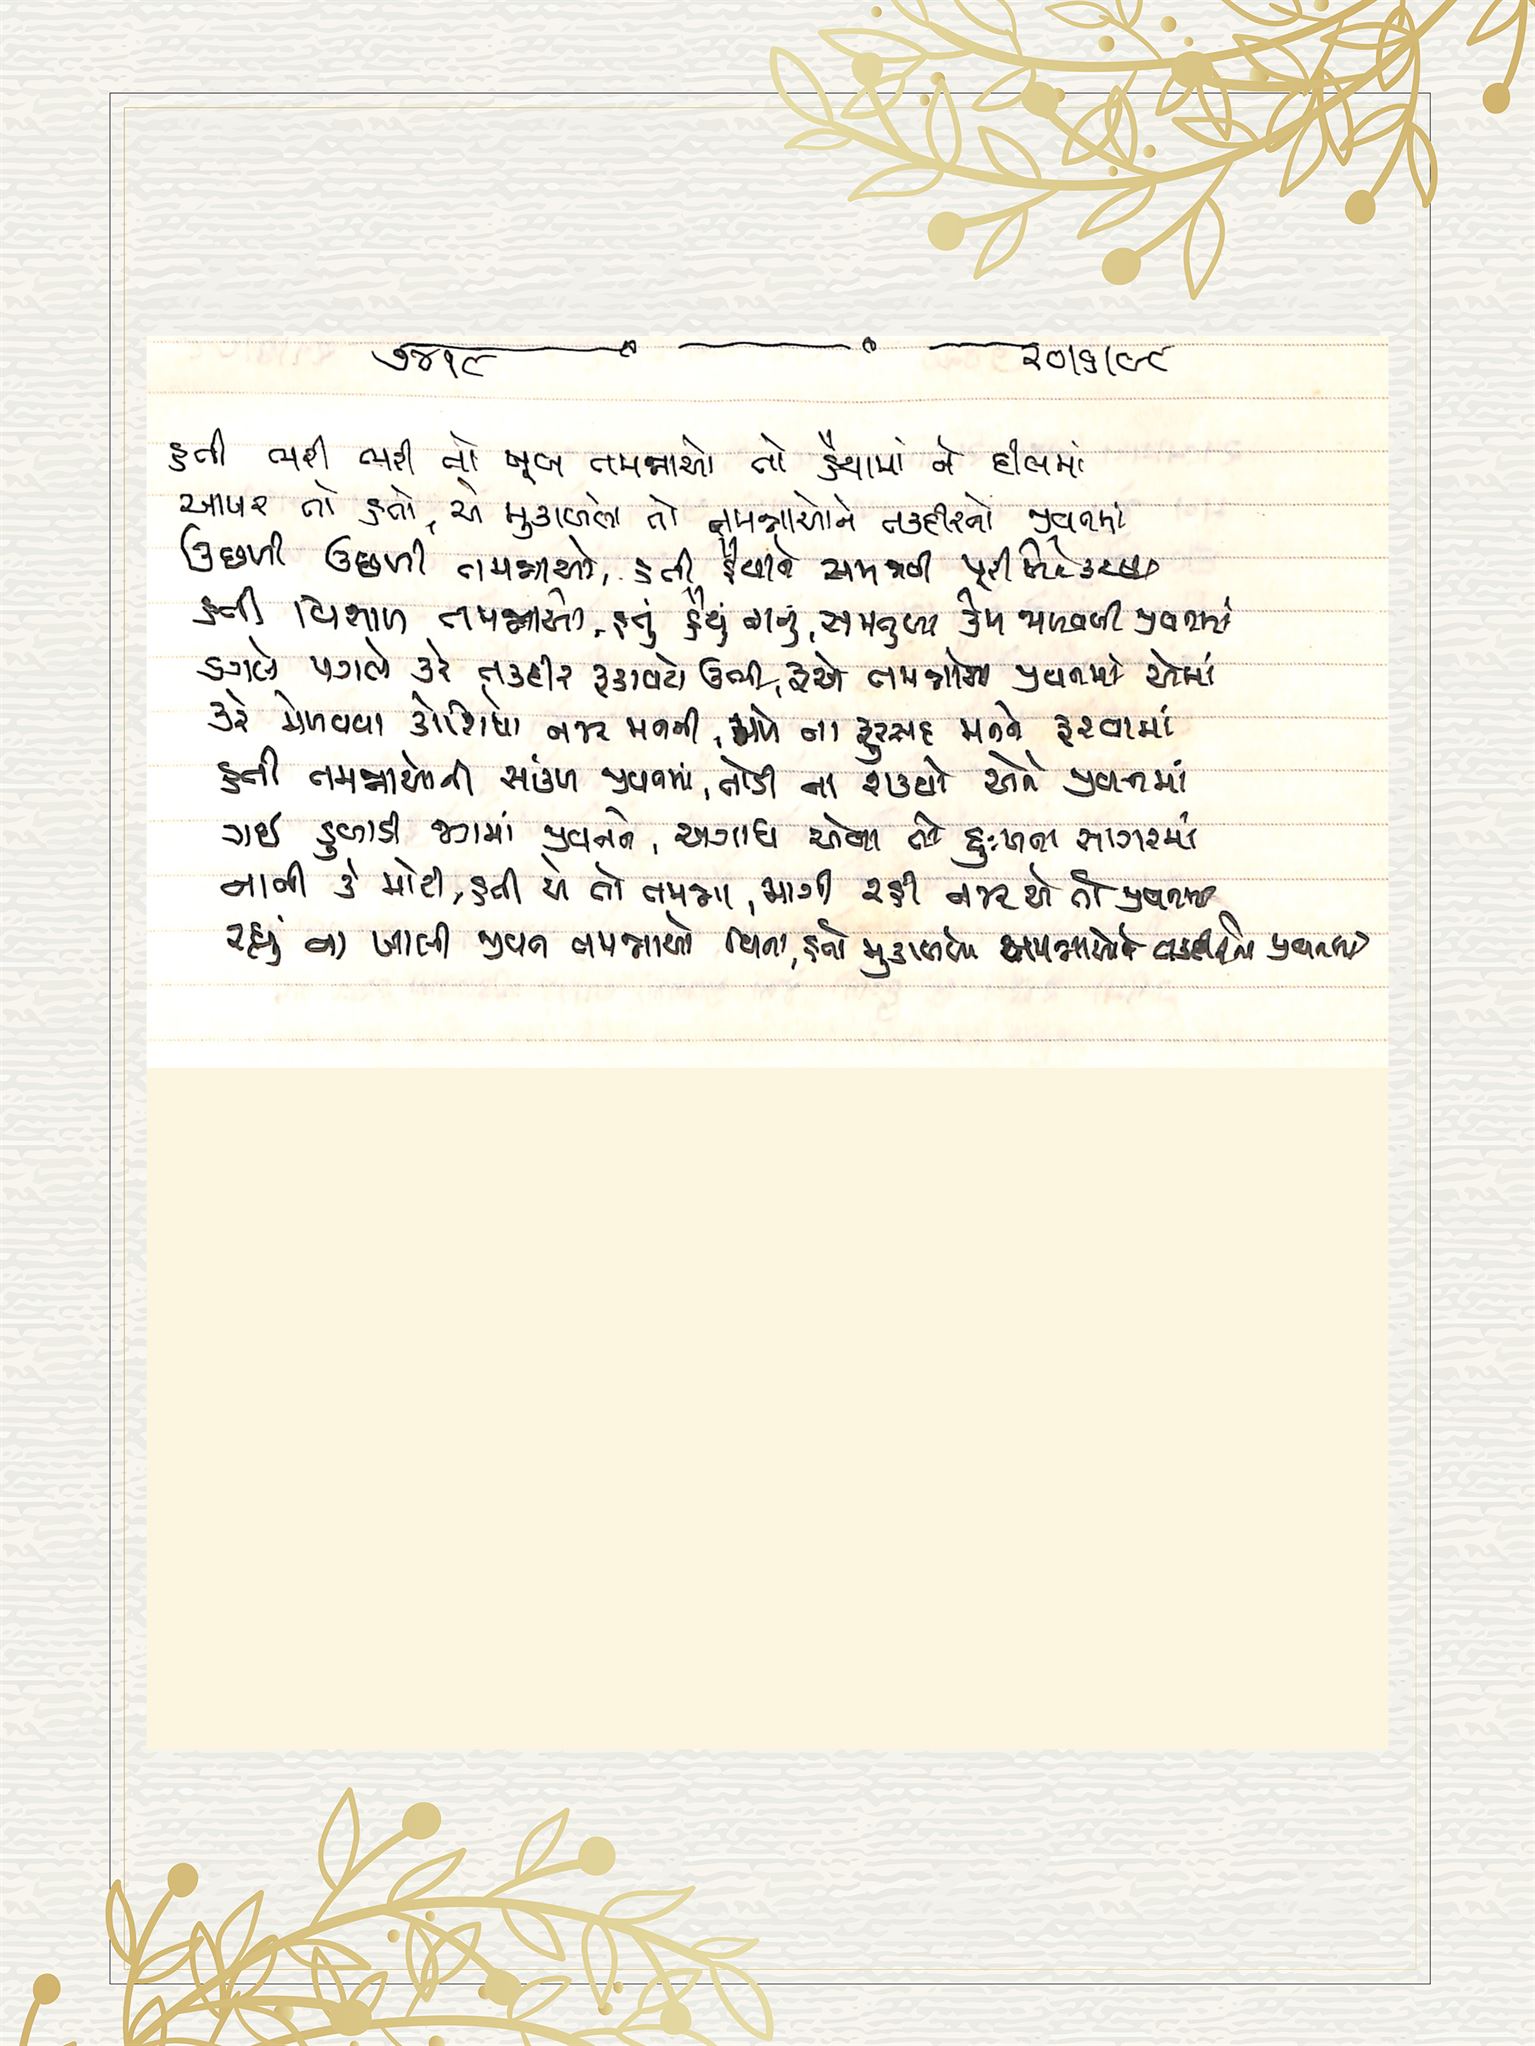 ૭૪૧૯ ૨૦|૬|૯૯
હતી ભરી ભરી તો ખૂબ તમન્નાઓ તો હૈયામાં ને દીલમાં
આખર તો હતો, એ મુકાબલો તો તમન્નાઓને તકદીરનો જીવનમાં
ઉછળી ઉછળી તમન્નાઓ, હતી હૈયાને સમજવી પૂરી
હતી વિશાળ તમન્નાઓ, હતું હૈયું નાનું, સમતુલા કેમ જાળવવી જીવનમાં
ડગલે પગલે કરે તકદીર રૂકાવટો ઉભી, રૂએ તમન્નાઓ જીવનમાં એમાં
કરે મેળવવા કોશિષો નજર મનની, મળે ના ફુરસદ મનને ફરવામાં
હતી તમન્નાઓની સાંકળ જીવનમાં, તોડી ના શક્યો એને જીવનમાં
ગઈ ડુબાડી જગમાં જીવનને, અગાધ એવા તો દુઃખના સાગરમાં
નાની કે મોટી, હતી એ તો તમન્ના, માગી રહી નજર એ તો જીવનમાં
રહ્યું ના ખાલી જીવન તમન્નાઓ વિના, હતો મુકાબલો તમન્નાઓને તકદીરનો જીવનમાં